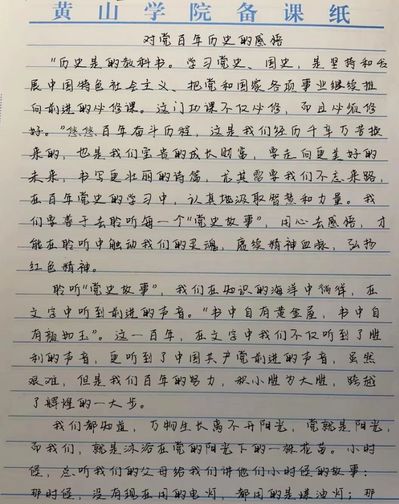 黄山学院备课纸
对党百年历史的感悟
“历史是最好的教科书。学习党史、国史，是坚持和发
展中国特色社会主义、把党和国家各项事业继续推
向前进的必修课。这门功课不仅必修，而且必须修
好。”悠悠百年奋斗历程，这是我们经历千辛万苦换
来的，也是我们宝贵的成长财富，要走向更美好的
未来，书写更壮丽的诗篇，尤其需要我们不忘来路，
在百年党史的学习中，认真地汲取智慧和力量。我
们要善于去聆听每一个“党史故事”，用心去感悟，才
能在聆听中触动我们的灵魂，赓续精神血脉，弘扬
红色精神。
聆听“党史故事”，我们在知识的海洋中徜徉，在
文字中听到前进的声音。“书中自有黄金屋，书中自
有颜如玉”。这一百年，在文字中我们不仅听到了胜
利的声音，更听到了中国共产党前进的声音，虽然
艰难，但是我们百年的努力，积小胜为大胜，跨越
了辉煌的一大步。
我们都知道，万物生长离不开阳光，党就是阳光，
而我们，就是沐浴在党的阳光下的一株花苗。小时
候，总听我们的父母给我们讲他们小时候的故事：
那时候，没有现在用的电灯，都用的是煤油灯；那